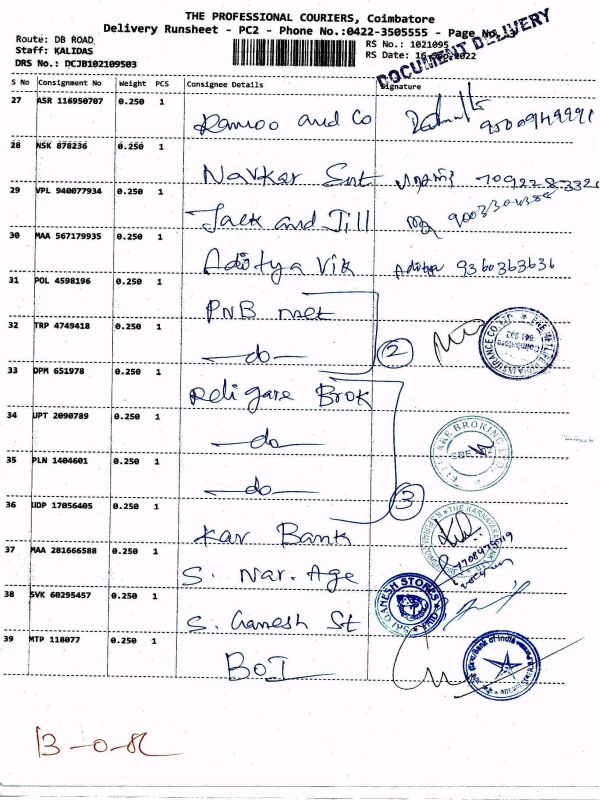 THE PROFESSIONAL COURIERS, Coimbatore
Delivery Runsheet - PC2 - Phone No.:0422-3505555 - Page No.
Route: DB ROAD
Staff: KALIDAS
DRS No.: DCJB102109503
RS No.: 1021095
RS Date: 16
2022
DOCUMENT DELIVERY
S No Consignment No Weight PCS Consignee Details Signature
27 ASR 116950707 0.250 1 Ramoo and Co
28 NSK 878236 0.250 1 Navkar Ent
29 VPL 940077934 0.250 1 Jack and Jill
30 MAA 567179935 0.250 1 Aditya Vik Aditya 9360363636
31 POL 4598196 0.250 1 PNB met
32 TRP 4749418 0.250 1 —do— 2
33 DPM 651978 0.250 1 Religare Brok
34 UPT 2090789 0.250 1 —do—
35 PLN 1404601 0.250 1 —do— 3
36 UDP 17056405 0.250 1 Kar Bank
37 MAA 281666588 0.250 1 S. Nar. Age
38 SVK 60295457 0.250 1 S. Ganesh St
SRI GANESH STORES
39 MTP 118077 0.250 1 BOI
Bank of India